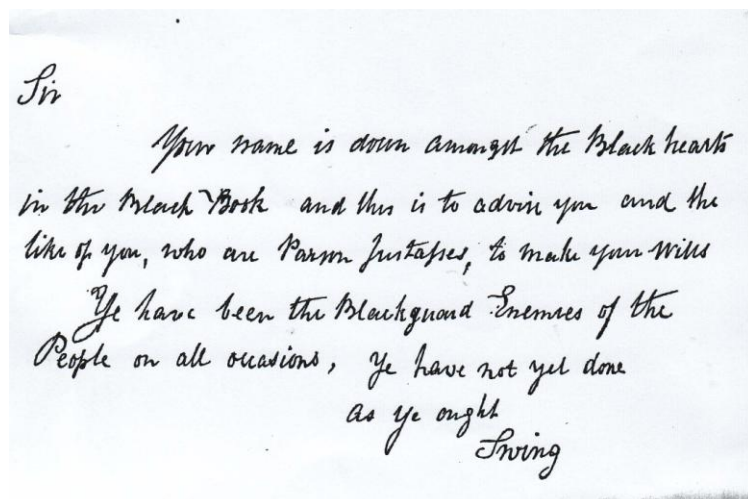 Sir
Your name is down amongst the Black hearts
in the Black Book and this is to advise you and the
like of you, who are Parson Justasses, to make your Wills
Ye have been the Blackguard Enemies of the
People on all occasions, Ye have not yet done
as ye ought
Swing